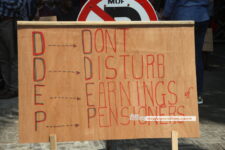 MUF
D DONT
D DISTURB
E EARNINGS of
P PENSIONERS